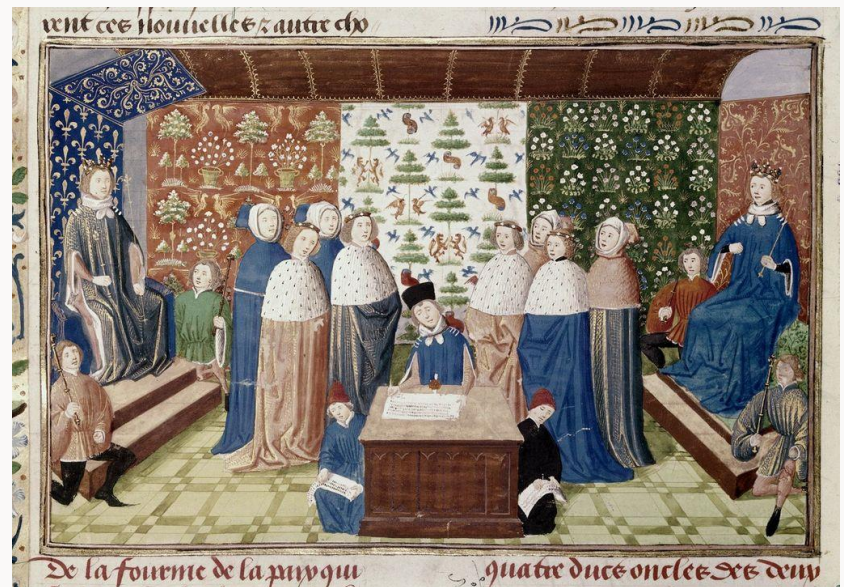 vent ces nouuelles ⁊ autre cho
De la fourme de la qui
quatre ducs oncles des deux